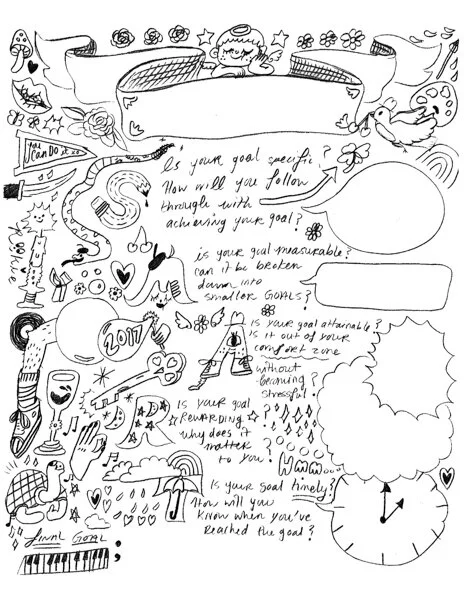 you
can Do it 20
S
Is your goal specific?
How will you follow
through with
achieving your goal?
M
is your goal measurable?
can it be broken
down into
smaller GOALS?
2017
A
Is your goal attainable?
Is it out of your
comfort zone
without
becoming
stressful?
R
Is your goal
REWARDING?
why does it
matter
to you?
Hmm...
T
Is your goal timely?
How will you
know when you've
reached the goal?
final GOAL